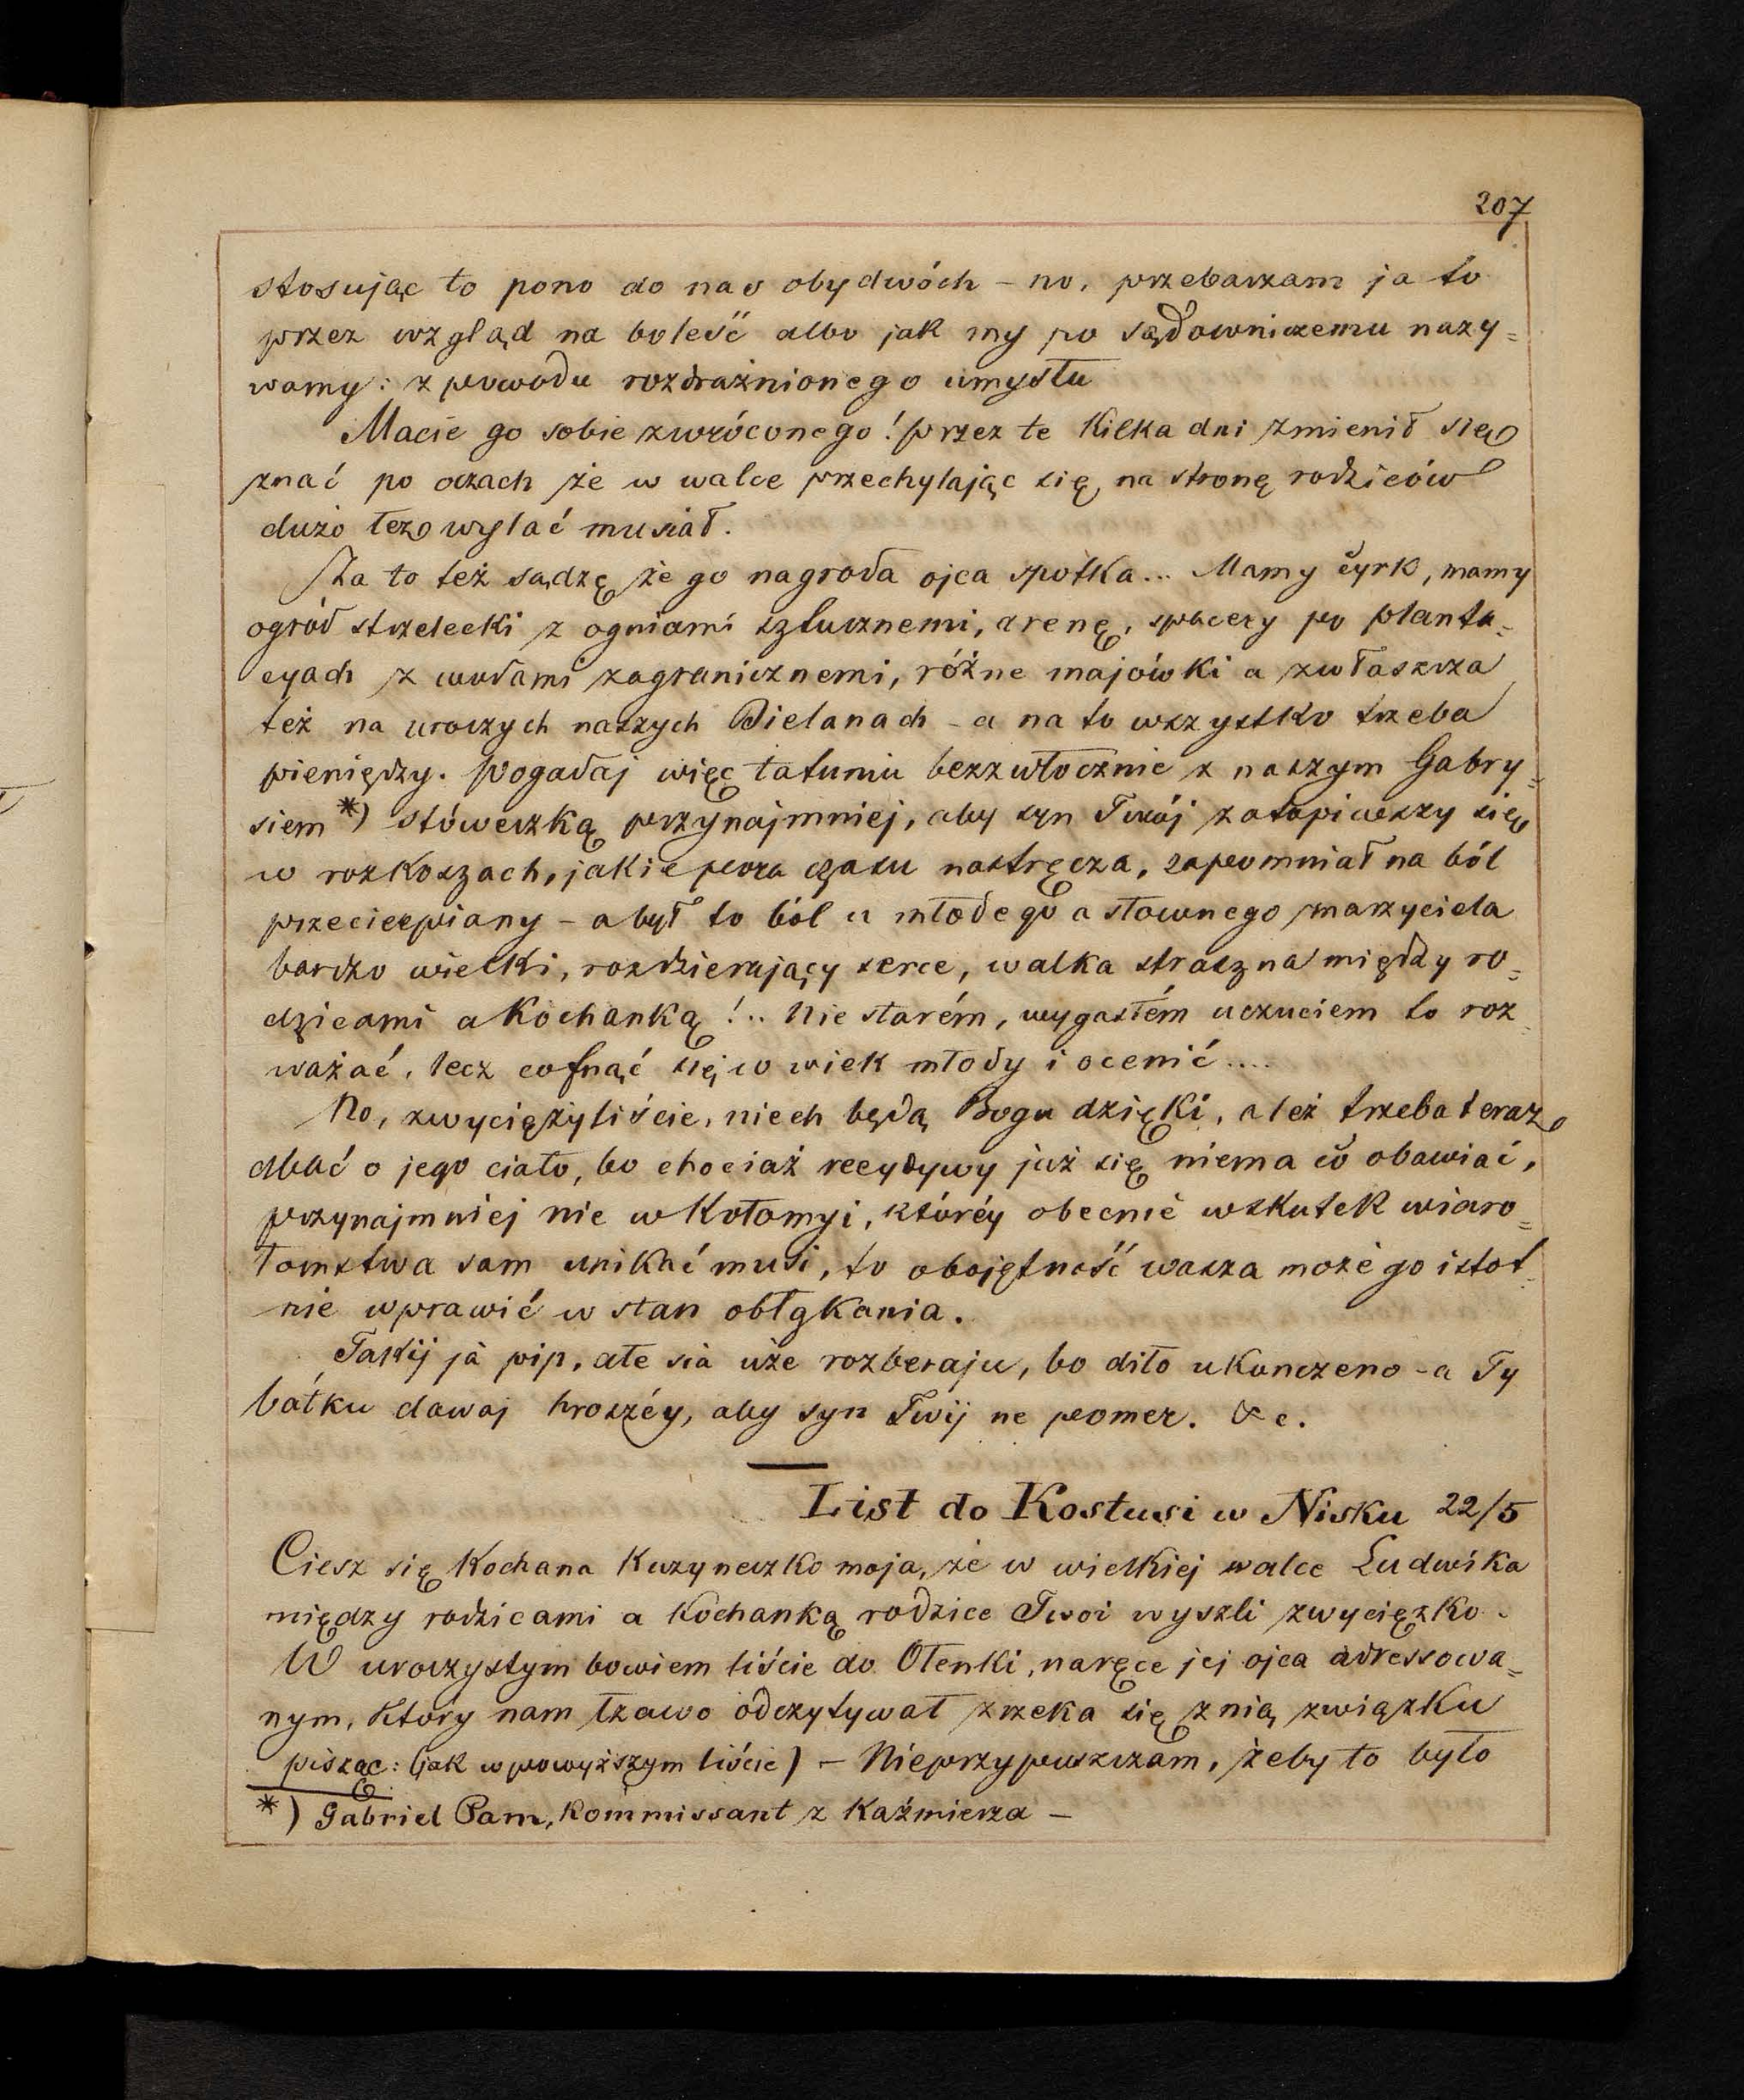 207
stosując to pono do nas obydwóch – no, przebaczam ja to
przez wzgląd na boleść albo jak my po sądowniczemu nazy=
wamy: z powodu rozdrażnionego umysłu
Macie go sobie zwróconego! przez te kilka dni zmienił się
znać po oczach że w walce przechylając się na stronę rodziców
dużo łez wylać musiał.
Za to też sądzę że go nagroda ojca spotka... Mamy cyrk, mamy
ogród strzelecki z ogniami sztucznemi, arenę, spacery po planta=
cyach z wodami zagranicznemi, różne majówki a zwłaszcza
też na uroczych naszych Bielanach – a na to wszystko trzeba
pieniędzy. Pogadaj więc tatuniu bezzwłocznie z naszym Gabry=
siem *) stóweczką przynajmniej, aby syn Twój zatopiwszy się
w rozkoszach, jakie pora czasu nastręcza, zapomniał na ból
przecierpiany – a był to ból u młodego a słownego marzyciela
bardzo wielki, rozdzierający serce, walka straszna między ro=
dzicami a kochanką!.. Nie starém, wygasłém uczuciem to roz
ważać, lecz cofnąć się w wiek młody i ocenić....
No, zwyciężyliście, niech będą Bogu dzięki, ależ trzeba teraz
dbać o jego ciało, bo chociaż recydywy już się niema co obawiać,
przynajmniej nie w Kołomyi, któréy obecnie wskutek wiaro=
łomstwa sam unikać musi, to obojętność wasza może go istot
nie wprawić w stan obłąkania.
Takij ja pip, ałe sia uże rozberaju, bo diło ukonczeno – a Ty
bat'ku dawaj hroszéy, aby syn Twij ne pomer. &c.
List do Kostusi w Nisku 22/5
Ciesz się Kochana Kuzyneczko moja, że w wielkiej walce Ludwika
między rodzicami a kochanką rodzice Twoi wyszli zwycięzko.
W uroczystym bowiem liście do Oleńki, na ręce jej ojca adressowa=
nym, który nam łzawo odczytywał zrzeka się z nią związku
pisząc: (jak w powyższym liście) – Nieprzypuszczam, żeby to było
*) Gabriel Pam, kommissant z Kaźmierza –